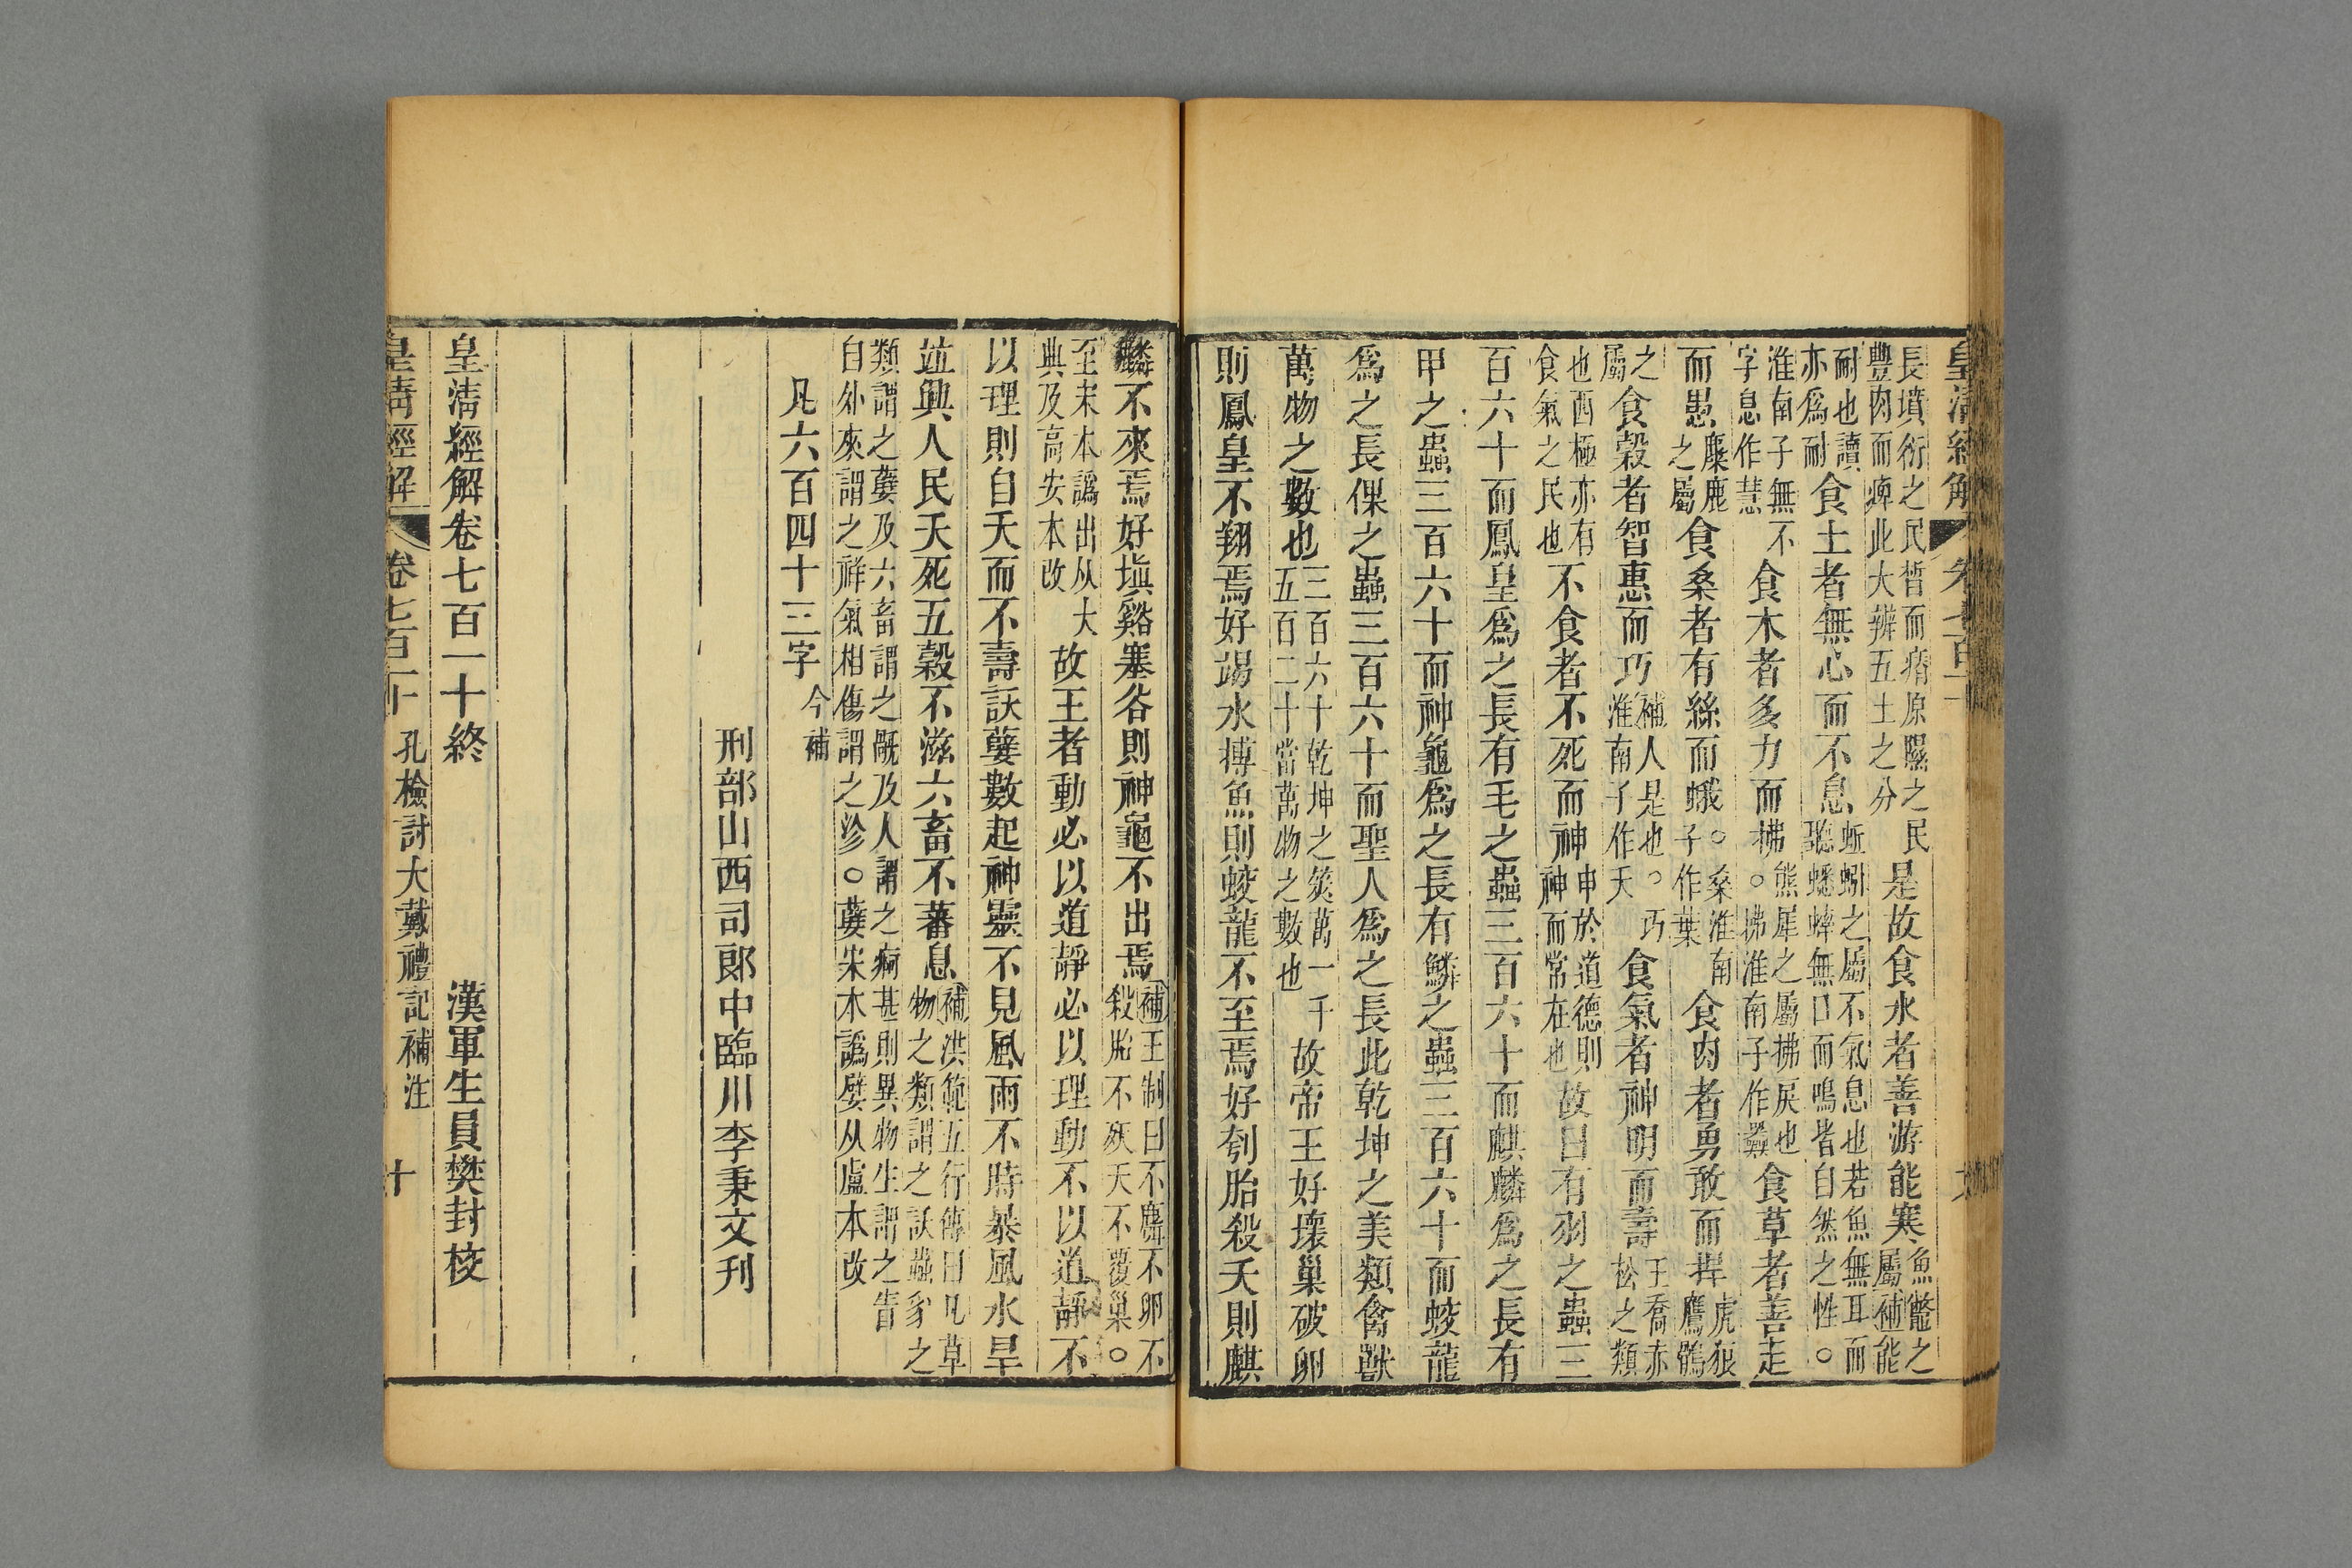 皇清經解 卷七百一十
長墳衍之民皙而瘠原隰之民
豐肉而痺此大辨五土之分
是故食水者善游能寒
魚鼈之
屬補能
耐也讀
亦爲耐
食土者無心而不息
蚯蚓之屬不氣息也若魚無耳而
聽蟠蟀無口而鳴皆自然之性○
淮南子無不
字息作慧
食木者多力而拂
熊犀之屬拂戾也
○拂淮南子作㚠
食草者善走
而愚
麋鹿
之屬
食桑者有絲而蛾
○桑淮南
子作葉
食肉者勇敢而捍
虎狼
鷹鶻
之
屬
食穀者智惠而巧
補人是也○巧
淮南子作天
食氣者神明而壽
王喬赤
松之類
也西極亦有
食氣之民也
不食者不死而神
申於道德則
神而常在也
故曰有羽之蟲三
百六十而鳳皇爲之長有毛之蟲三百六十而麒麟爲之長有
甲之蟲三百六十而神龜爲之長有鱗之蟲三百六十而蛟龍
爲之長倮之蟲三百六十而聖人爲之長此乾坤之美類禽獸
萬物之數也
三百六十乾坤之筴萬一千
五百二十當萬物之數也
故帝王好壞巢破卵
則鳳皇不翔焉好竭水搏魚則蛟龍不至焉好刳胎殺夭則麒
麟不來焉好塡谿塞谷則神龜不出焉
補王制曰不麛不卵不
殺胎不殀夭不覆巢○
至宋本譌出从大
典及高安本改
故王者動必以道靜必以理動不以道靜不
以理則自夭而不壽訞孽數起神靈不見風雨不時暴風水旱
竝興人民夭死五穀不滋六畜不蕃息
補洪範五行傳曰凡草
物之類謂之訞蟲豸之
類謂之孽及六畜謂之旤及人謂之痾甚則異物生謂之眚
自外來謂之祥氣相傷謂之沴○孽宋本譌嬖从盧本改
凡六百四十三字
今
補
刑部山西司郎中臨川李秉文刊
皇清經解卷七百一十終
漢軍生員樊封校
皇清經解 卷七百一十 孔檢討大戴禮記補注 十